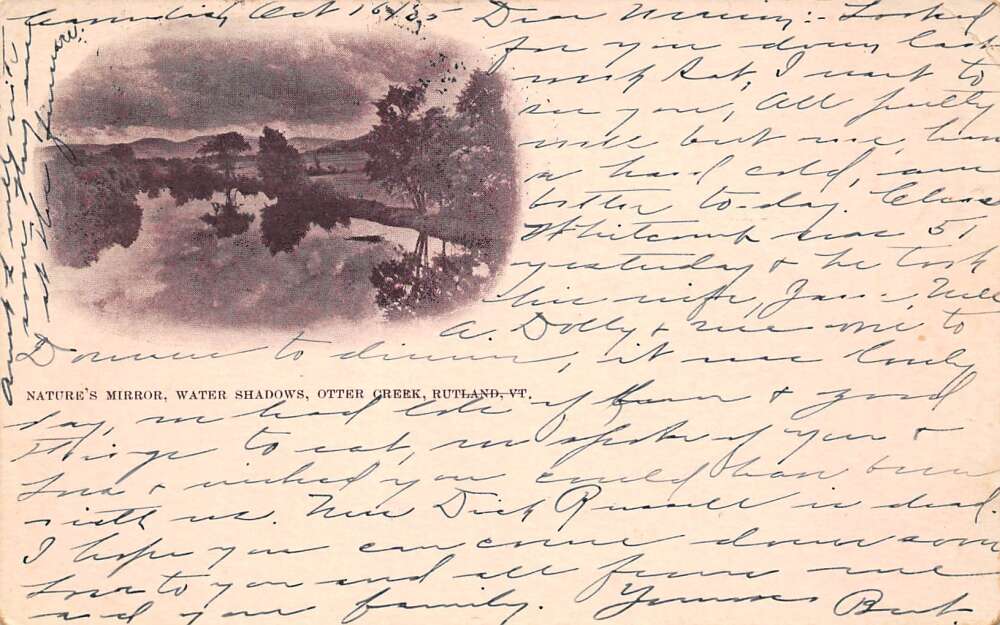 Oct 16/05 Dear :- Looked
for you down last
week Sat, I want to
see you, All pretty
well but me, have
a hard cold, am
better to-day.
Whitcomb was 51
yesterday & he took
his wife, Nell
A. Dolly & me over to
to dinner, it was lovely
NATURE'S MIRROR, WATER SHADOWS, OTTER CREEK, RUTLAND, VT.
day, we had lots of fun & good
things to eat, we spoke of you &
& wished you could have been
with us. Mrs Dick Russell is dead.
I hope you can come down soon
Love to you and all from me
and your family. Yours Bert.